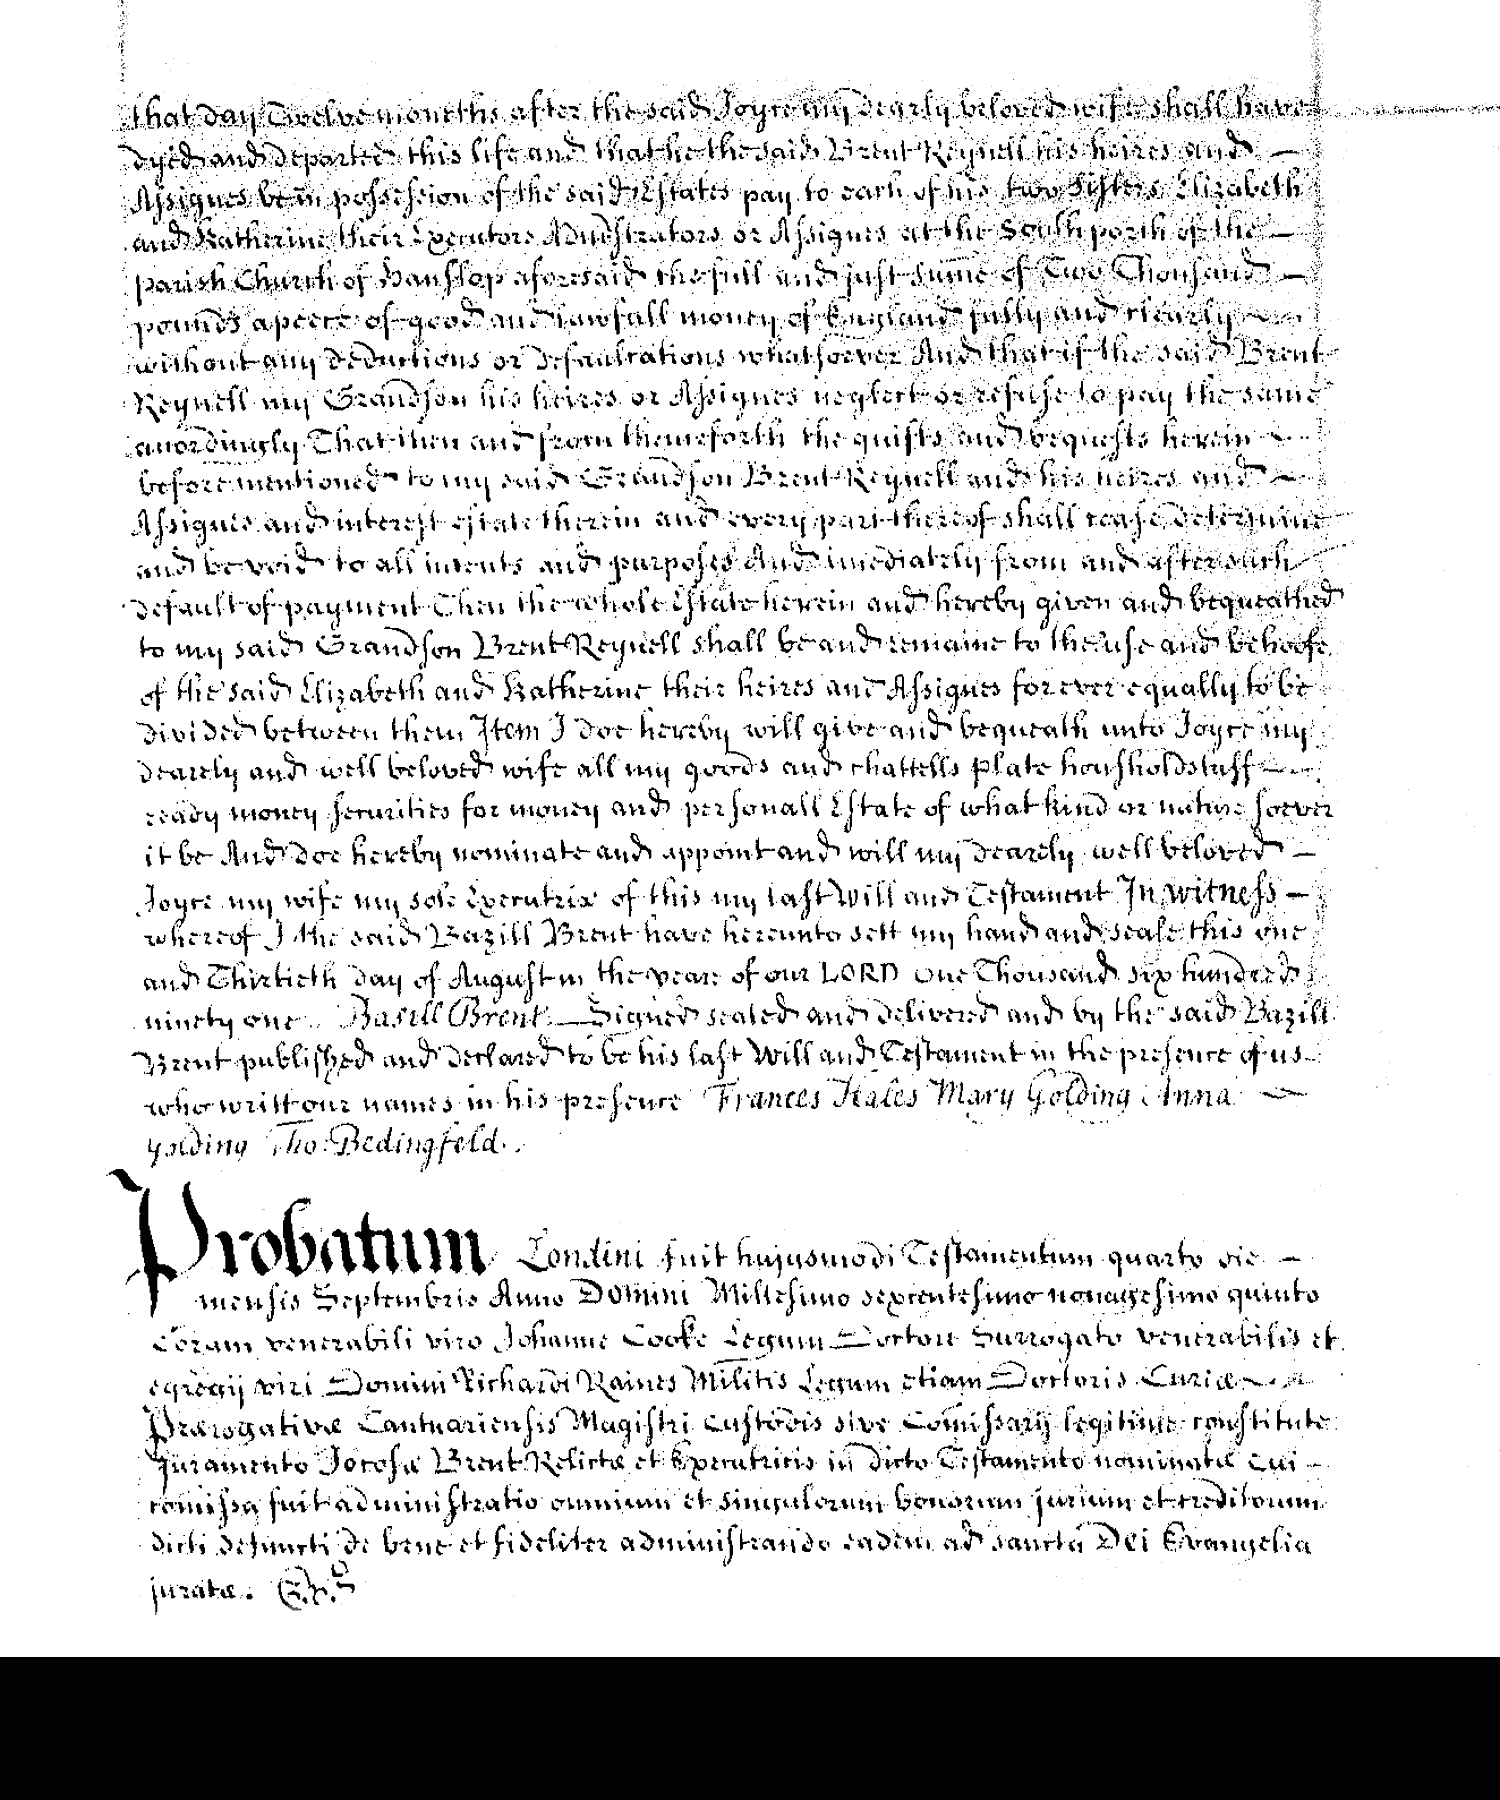 that day Twelve moneths after the said Joyce my dearly beloved wife shall have
dyed and departed this life and that he the said Brent Reynell his heires and
Assignes be in possession of the said Estates pay to each of his two Sisters Elizabeth
and Katherine their Executors Adm̄strators or Assignes at the South porch of the
parish Church of Hanslop aforesaid the full and just sum̄e of Two Thousand
pounds apeece of good and lawfull money of England fully and clearly
without any deductions or defaulcations whatsoever And that if the said Brent
Reynell my Grandson his heires or Assignes neglect or refuse to pay the same
accordingly That then and from thenceforth the guifts and bequests herein
before mentioned to my said Grandson Brent Reynell and his heires and
Assignes and interest estate therein and every part thereof shall cease determine
and be void to all intents and purposes And im̄ediately from and after such
default of payment Then the whole Estate herein and hereby given and bequeathed
to my said Grandson Brent Reynell shall be and remaine to the use and behoofe
of the said Elizabeth and Katherine their heires and Assignes for ever equally to be
divided between them Item I doe hereby will give and bequeath unto Joyce my
dearely and well beloved wife all my goods and chattells plate housholdstuff
ready money securities for money and personall Estate of what kind or nature soever
it be And doe hereby nominate and appoint and will my dearely well beloved
Joyce my wife my sole Executrix of this my last Will and Testament In witness
whereof I the said Bazill Brent have hereunto sett my hand and seale this one
and Thirtieth day of August in the yeare of our LORD One Thousand six hundred
ninety one Basill Brent Signed sealed and delivered and by the said Bazill
Brent published and declared to be his last Will and Testament in the presence of us
who writt our names in his presence Frances Hales Mary Golding Anna
Golding Tho: Bedingfeld.
Probatum Londini fuit hujusmodi Testamentum quarto die
mensis Septembris Anno Domini Millesimo sexcentesimo nonagesimo quinto
Coram venerabili viro Johanne Cooke Legum Doctore Surrogato venerabilis et
egregij viri Domini Richardi Raines Militis Legum etiam Doctoris Curiæ
Prærogativæ Cantuariensis Magistri Custodis sive Com̄issarij legitime constitute
Juramento Jocosæ Brent Relictæ et Executricis in dicto Testamento nominatæ Cui
com̄issa fuit administratio omnium et singulorum bonorum jurium et creditorum
dicti defuncti de bene et fideliter administrando eadem ad sancta Dei Evangelia
juratæ.